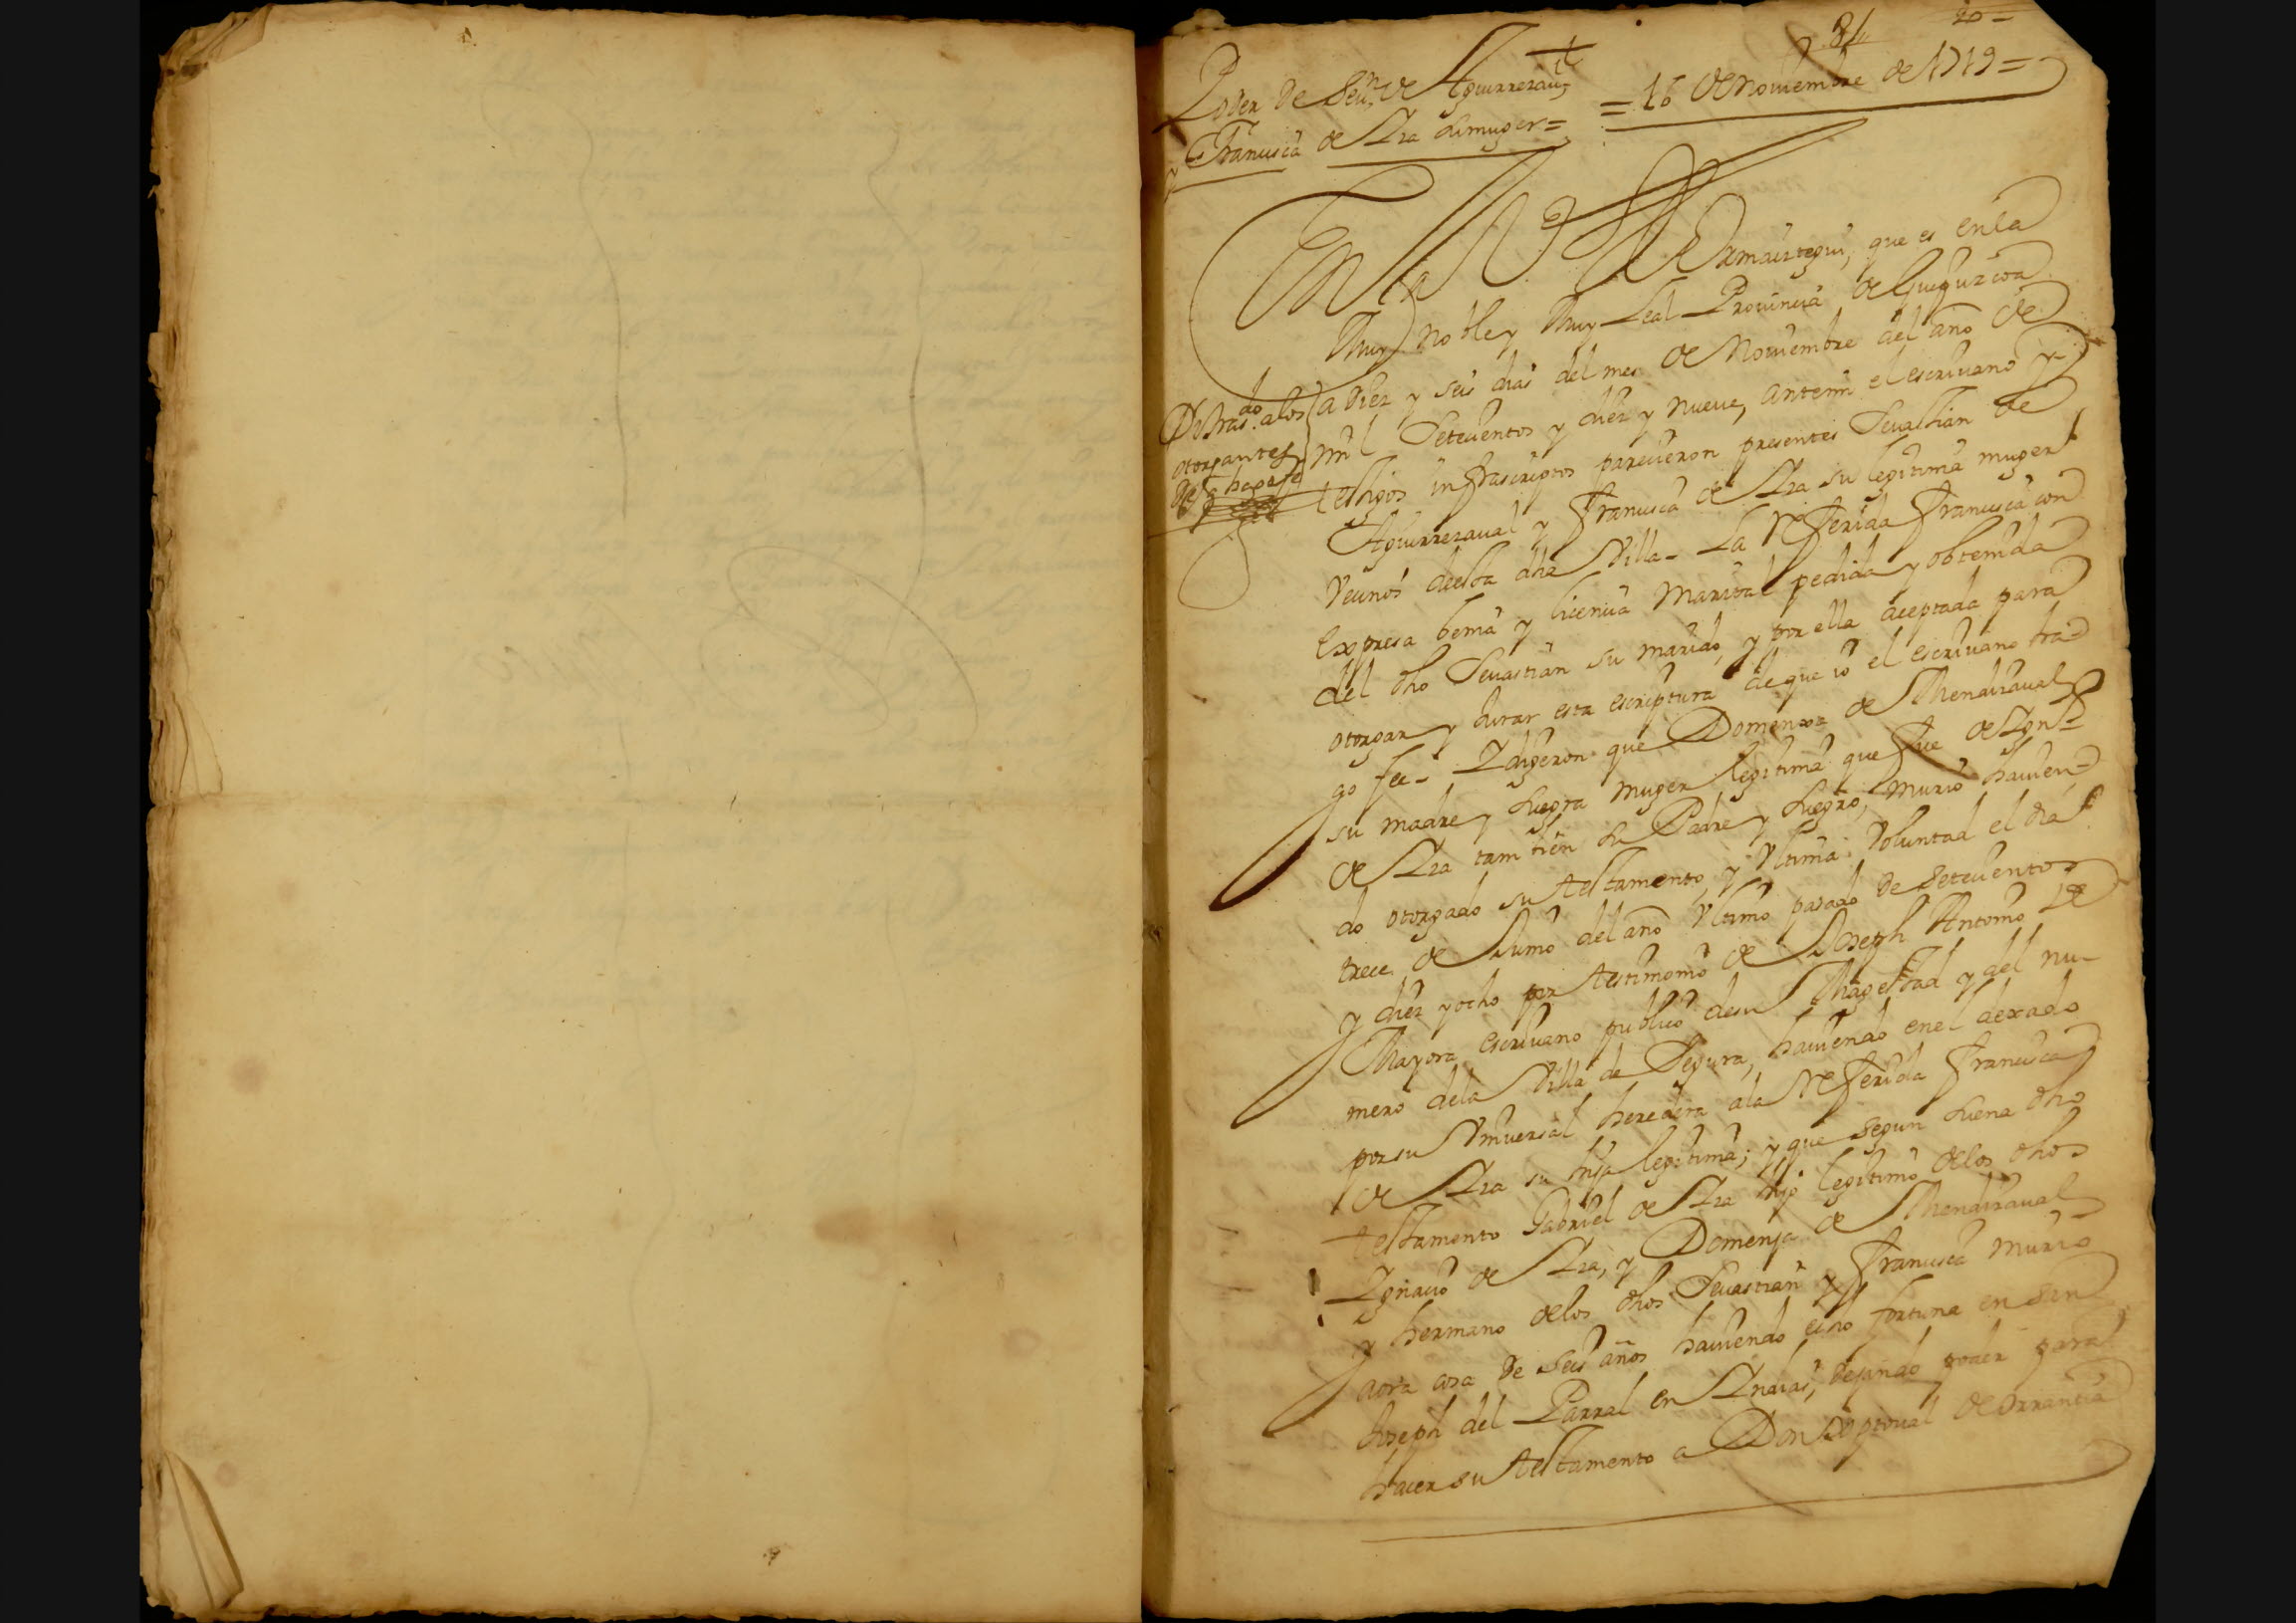 81
20=
Poder de Seun. de Aguirrezaual
y Francisca de Iza su muger=
=16 de Nouiembre de 1719=
En la N. Villa de Ormaiztegui, que es enla
Muy noble y Muy Leal Prouincia de Guipuzcoa
a Diez y seis dias del mes de Nouiembre del año de
mil Setecientos y diez y nueue, antemi el escriuano y
testigos infrascriptos parecieron presentes Seuastian de
Aguirrezaual y Francisca de Iza su legitima muger
Vecinos desta dha Villa- La Referida Francisca con
Expresa benia y licencia Marital pedida y obtenida
del dho Seuastian su marido, y por ella aceptada para
otorgar y Jurar esta escriptura de que io el escriuano ha-
go fee- Y dijeron que Domenxa de Mendizaual
su madre y suegra muger legitima que fue de Ygn.º
de Iza tambien su Padre y suegro, murio hauien-
do otorgado su testamento, y Vltima Voluntad el dia
trece de Junio del año Vltimo pasado de setecientos
y diez y ocho por testimonio de Joseph Antonio de
Mayora escriuano publico de su Magestad y del nu-
mero dela Villa de Segura, hauiendo enel dexado
por su Vniuersal heredera ala Referida Francisca
de Iza su hija legitima; y que segun suena dho
testamento Gabriel de Iza hijo legitimo delos dhos
Ygnacio de Iza, y Domenja de Mendizaual
y hermano delos dhos Seuastian y Francisca murio
aora cosa de seis años hauiendo echo fortuna en san
Joseph del Parral en Indias, dejando poder para
hacer su testamento a Don Xptoual de Orrantia
Di tras.do alos
otorgantes